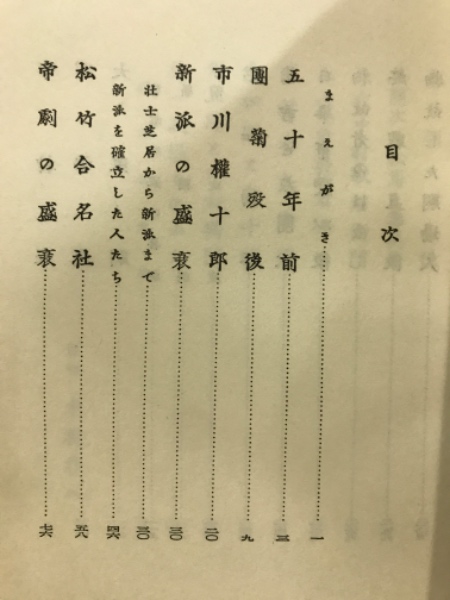 目次
まえがき……一
五十年前……三
團菊歿後……九
市川權十郎……二〇
新派の盛衰……三〇
壮士芝居から新派まで……三〇
新派を確立した人たち……四六
松竹合名社……五八
帝劇の盛衰……七六